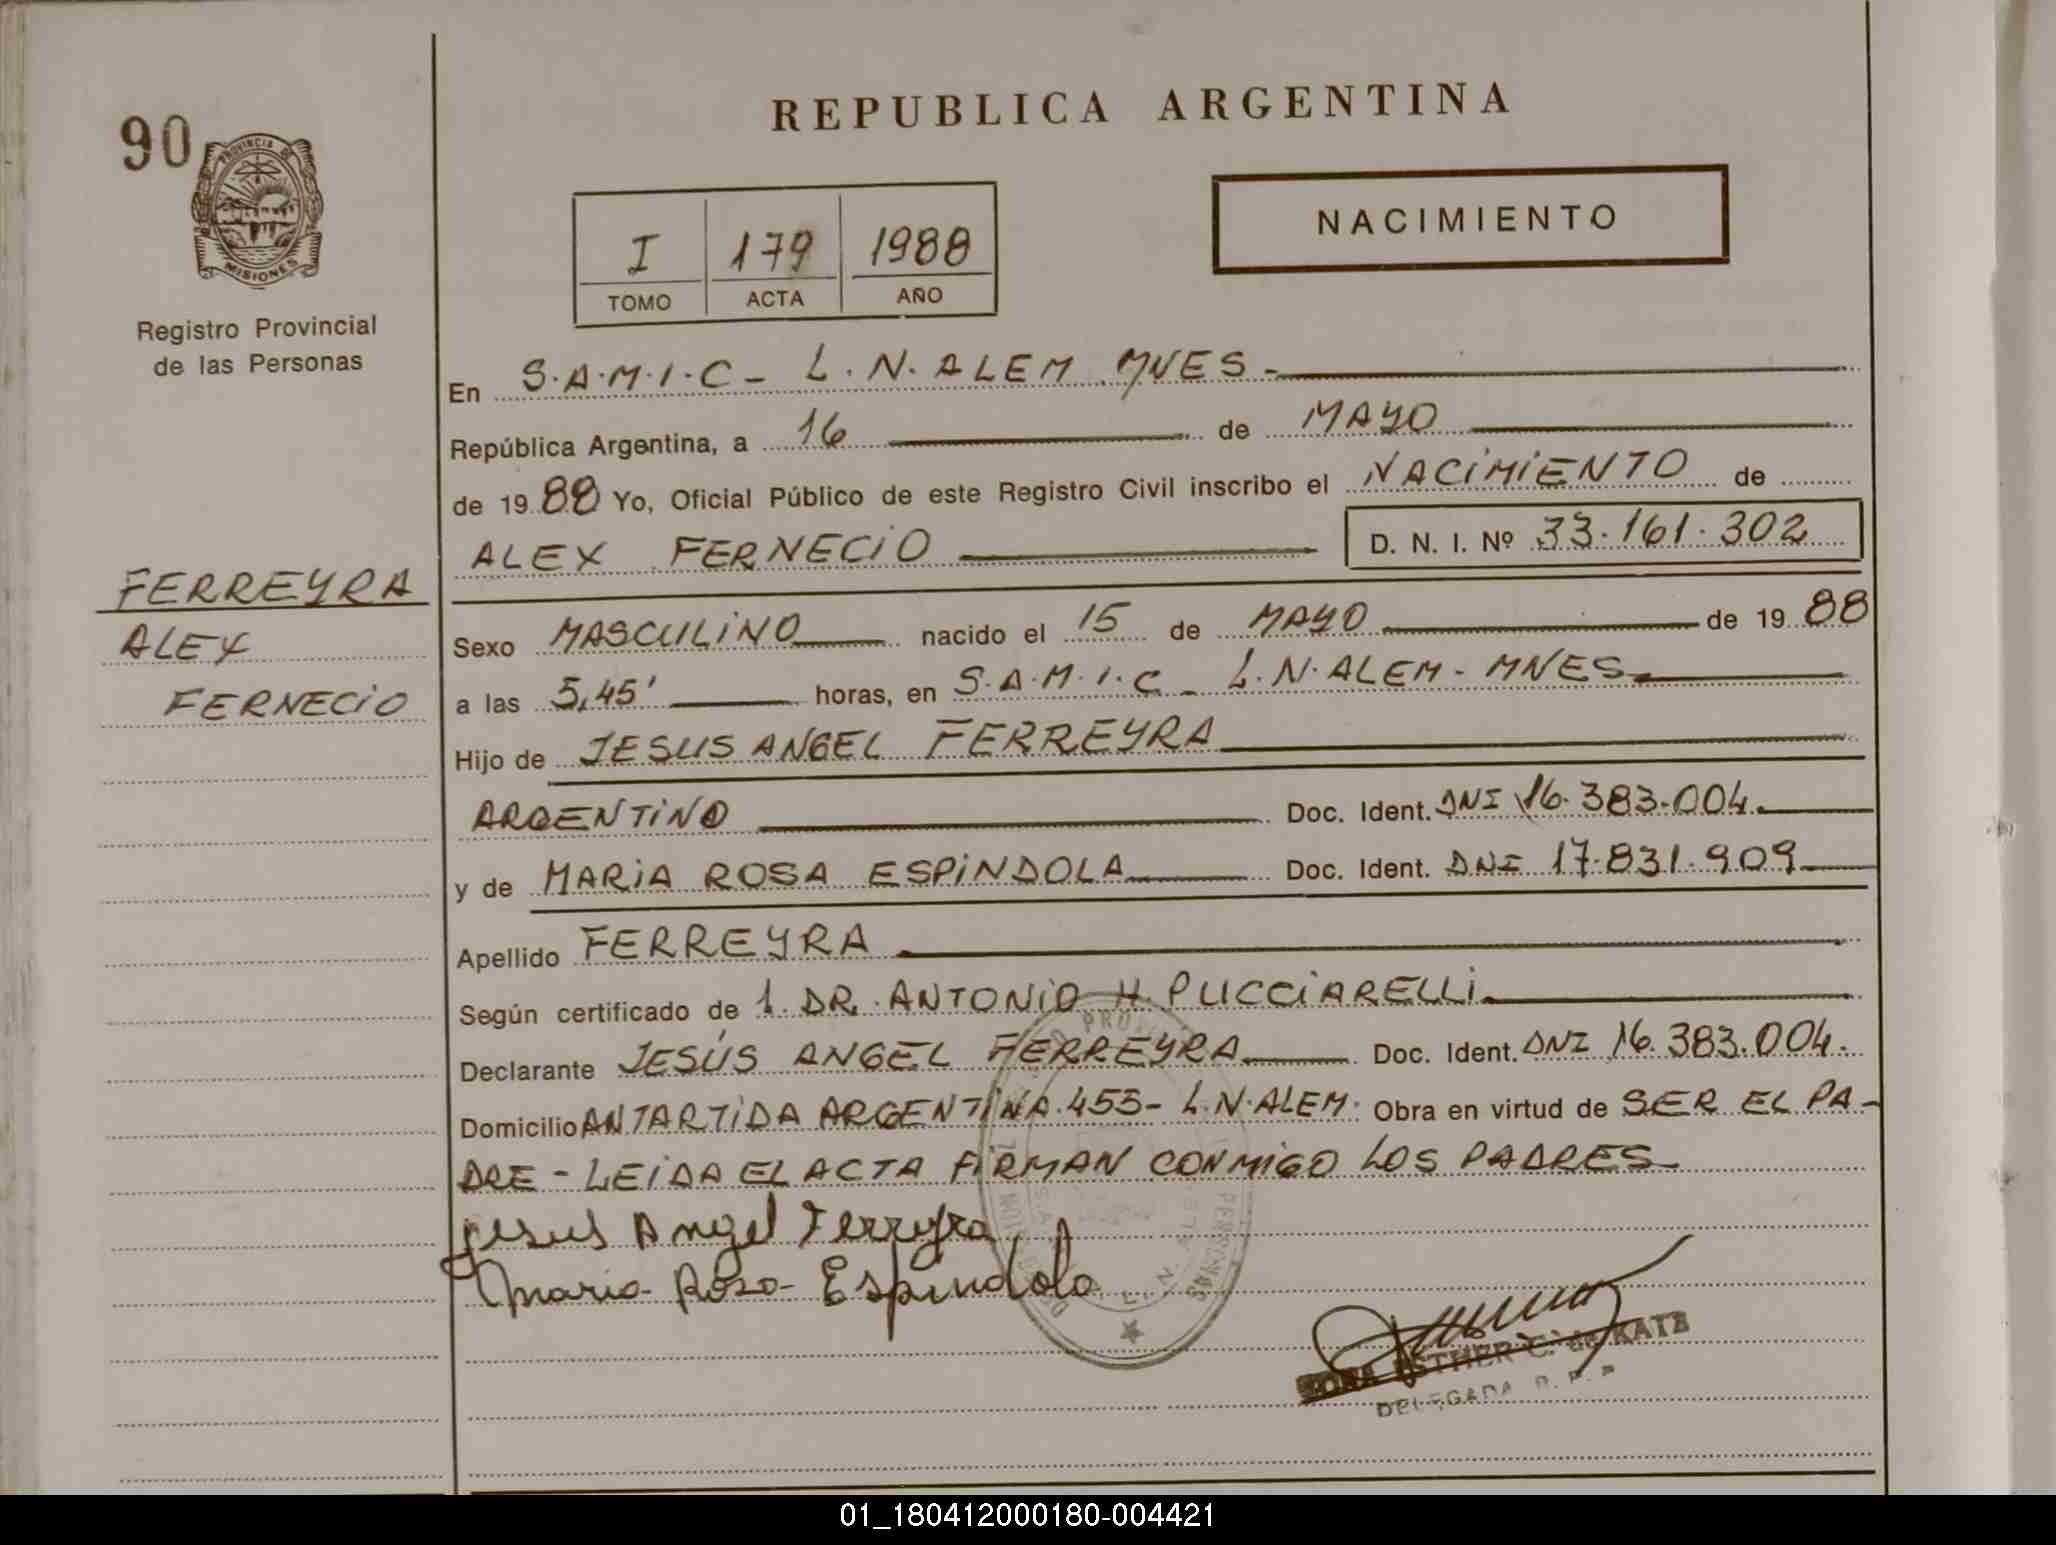 REPUBLICA ARGENTINA
90
PROVINCIA DE
MISIONES
Registro Provincial
de las Personas
NACIMIENTO
I 179 1988
TOMO ACTA AÑO
En S.A.M.I.C - L.N. ALEM MNES -
República Argentina, a 16 de MAYO
de 19 88 Yo, Oficial Público de este Registro Civil inscribo el NACIMIENTO de
ALEX FERNECIO D. N. I. Nº 33.161.302
FERREYRA
ALEX
FERNECIO
Sexo MASCULINO nacido el 15 de MAYO de 19 88
a las 5,45' horas, en S.A.M.I.C - L.N. ALEM - MNES
Hijo de JESUS ANGEL FERREYRA
ARGENTINO Doc. Ident. DNI 16.383.004.
y de MARIA ROSA ESPINDOLA Doc. Ident. DNI 17.831.909
Apellido FERREYRA
Según certificado de 1. DR. ANTONIO H. PUCCIARELLI
Declarante JESÚS ANGEL FERREYRA Doc. Ident. DNI 16.383.004.
Domicilio ANTARTIDA ARGENTINA. 455- L.N. ALEM. Obra en virtud de SER EL PA-
DRE - LEIDA EL ACTA FIRMAN CONMIGO LOS PADRES
Jesus Angel Ferreyra
Maria Rosa Espindola
ESTHER C. de KATZ
DELEGADA R. P. P
01_180412000180-004421